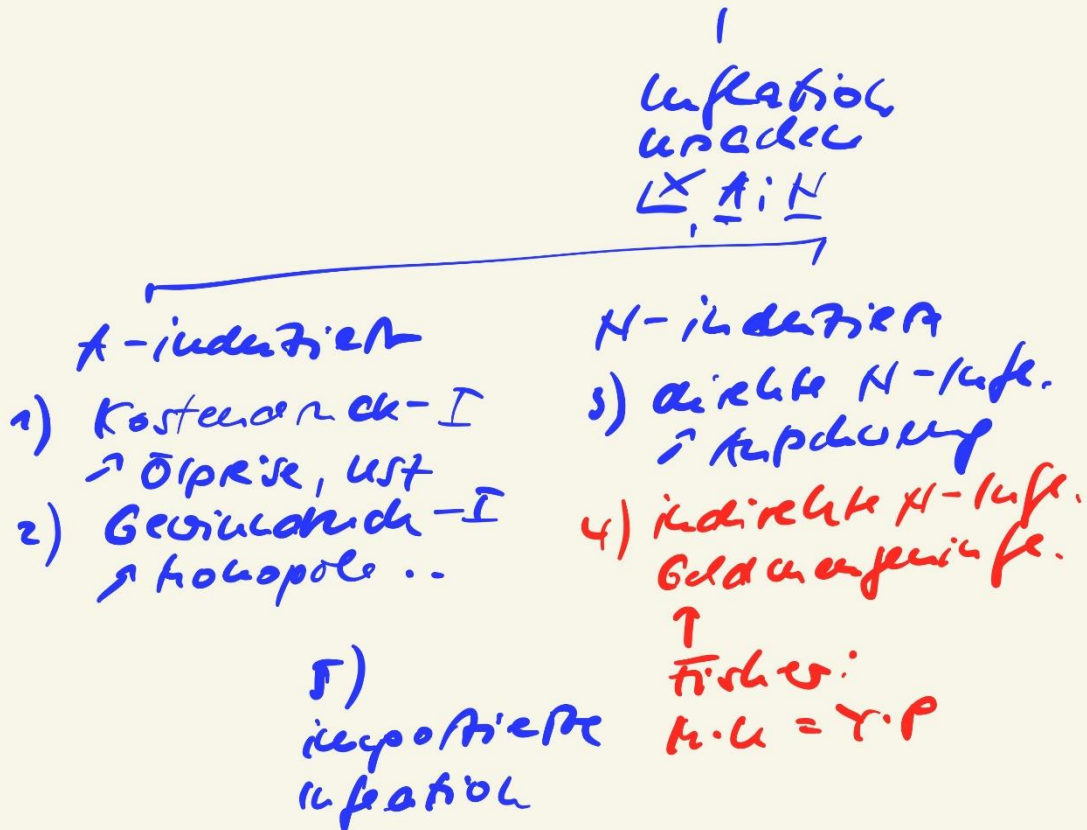 Inflation
ursachen
A; N
A-induziert
1) Kostendruck-I
↗ Ölpreise, USt
2) Gewinndruck-I
↗ Monopole ..
N-induziert
3) direkte N-Infl.
↗
4) indirekte N-Infl.
Geldmengeninfl.
↑
Fisher:
M·U = Y·P
5)
importierte
Inflation